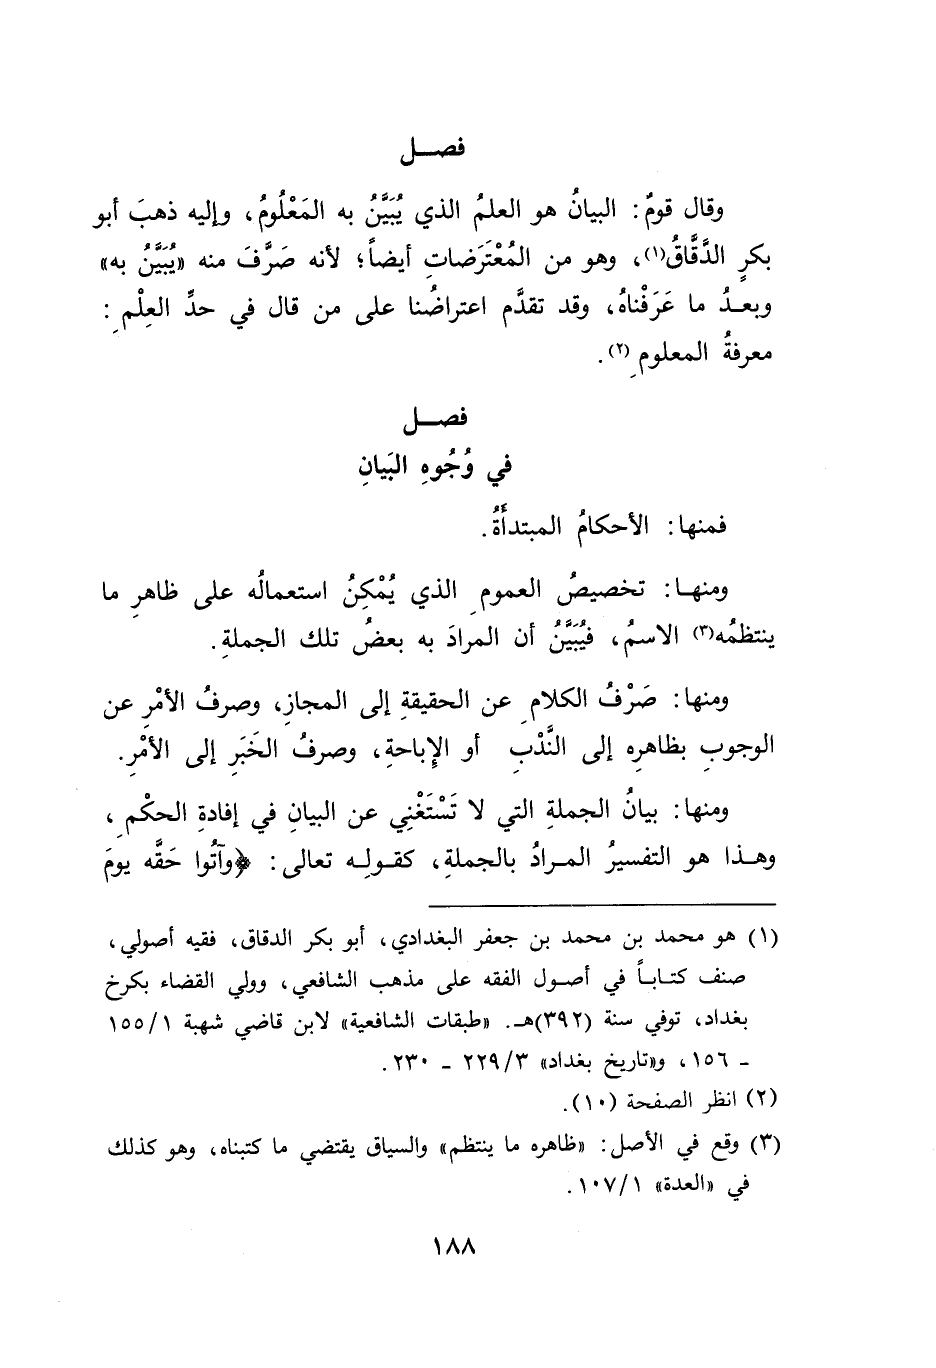 فصـــل
وقال قومٌ: البيانُ هو العلمُ الذي يُبَيَّنُ به المَعْلُومُ، وإليه ذهبَ أبو
بكرٍ الدَّقَّاقُ(١)، وهو من المُعْتَرَضاتِ أيضاً؛ لأنه صَرَّفَ منه «يُبَيَّنُ به»
وبعـدُ ما عَرَفْناهُ، وقد تقدَّم اعتراضُنا على من قال في حدِّ العِلْمِ:
معرفةُ المعلومِ(٢).
فصـــل
في وُجُوهِ البَيانِ
فمنها: الأحكامُ المبتدأَةُ.
ومنهـا: تخصيصُ العمومِ الذي يُمْكِنُ استعمالُه على ظاهرِ ما
ينتظمُه(٣) الاسمُ، فيُبَيَّنُ أن المرادَ به بعضُ تلك الجملةِ.
ومنها: صَرْفُ الكلامِ عن الحقيقةِ إلى المجازِ، وصرفُ الأمْرِ عن
الوجوبِ بظاهرِه إلى النَّدْبِ أو الإِباحةِ، وصرفُ الخَبَرِ إلى الأمْرِ.
ومنها: بيانُ الجملةِ التي لا تَسْتَغْنِي عن البيانِ في إفادةِ الحكْمِ،
وهـذا هو التفسيرُ المـرادُ بالجملةِ، كقـولِـه تعالى: ﴿وآتُوا حَقَّه يومَ
(١) هو محمد بن محمد بن جعفر البغدادي، أبو بكر الدقاق، فقيه أصولي،
صنف كتـابـاً في أصـول الفقه على مذهب الشافعي، وولي القضاء بكرخ
بغداد، توفي سنة (٣٩٢)هـ. «طبقات الشافعية» لابن قاضي شهبة ١٥٥/١
ـ ١٥٦، و«تاريخ بغداد» ٢٢٩/٣ ـ ٢٣٠.
(٢) انظر الصفحة (١٠).
(٣) وقع في الأصل: «ظاهره ما ينتظم» والسياق يقتضي ما كتبناه، وهو كذلك
في «العدة» ١٠٧/١.
١٨٨